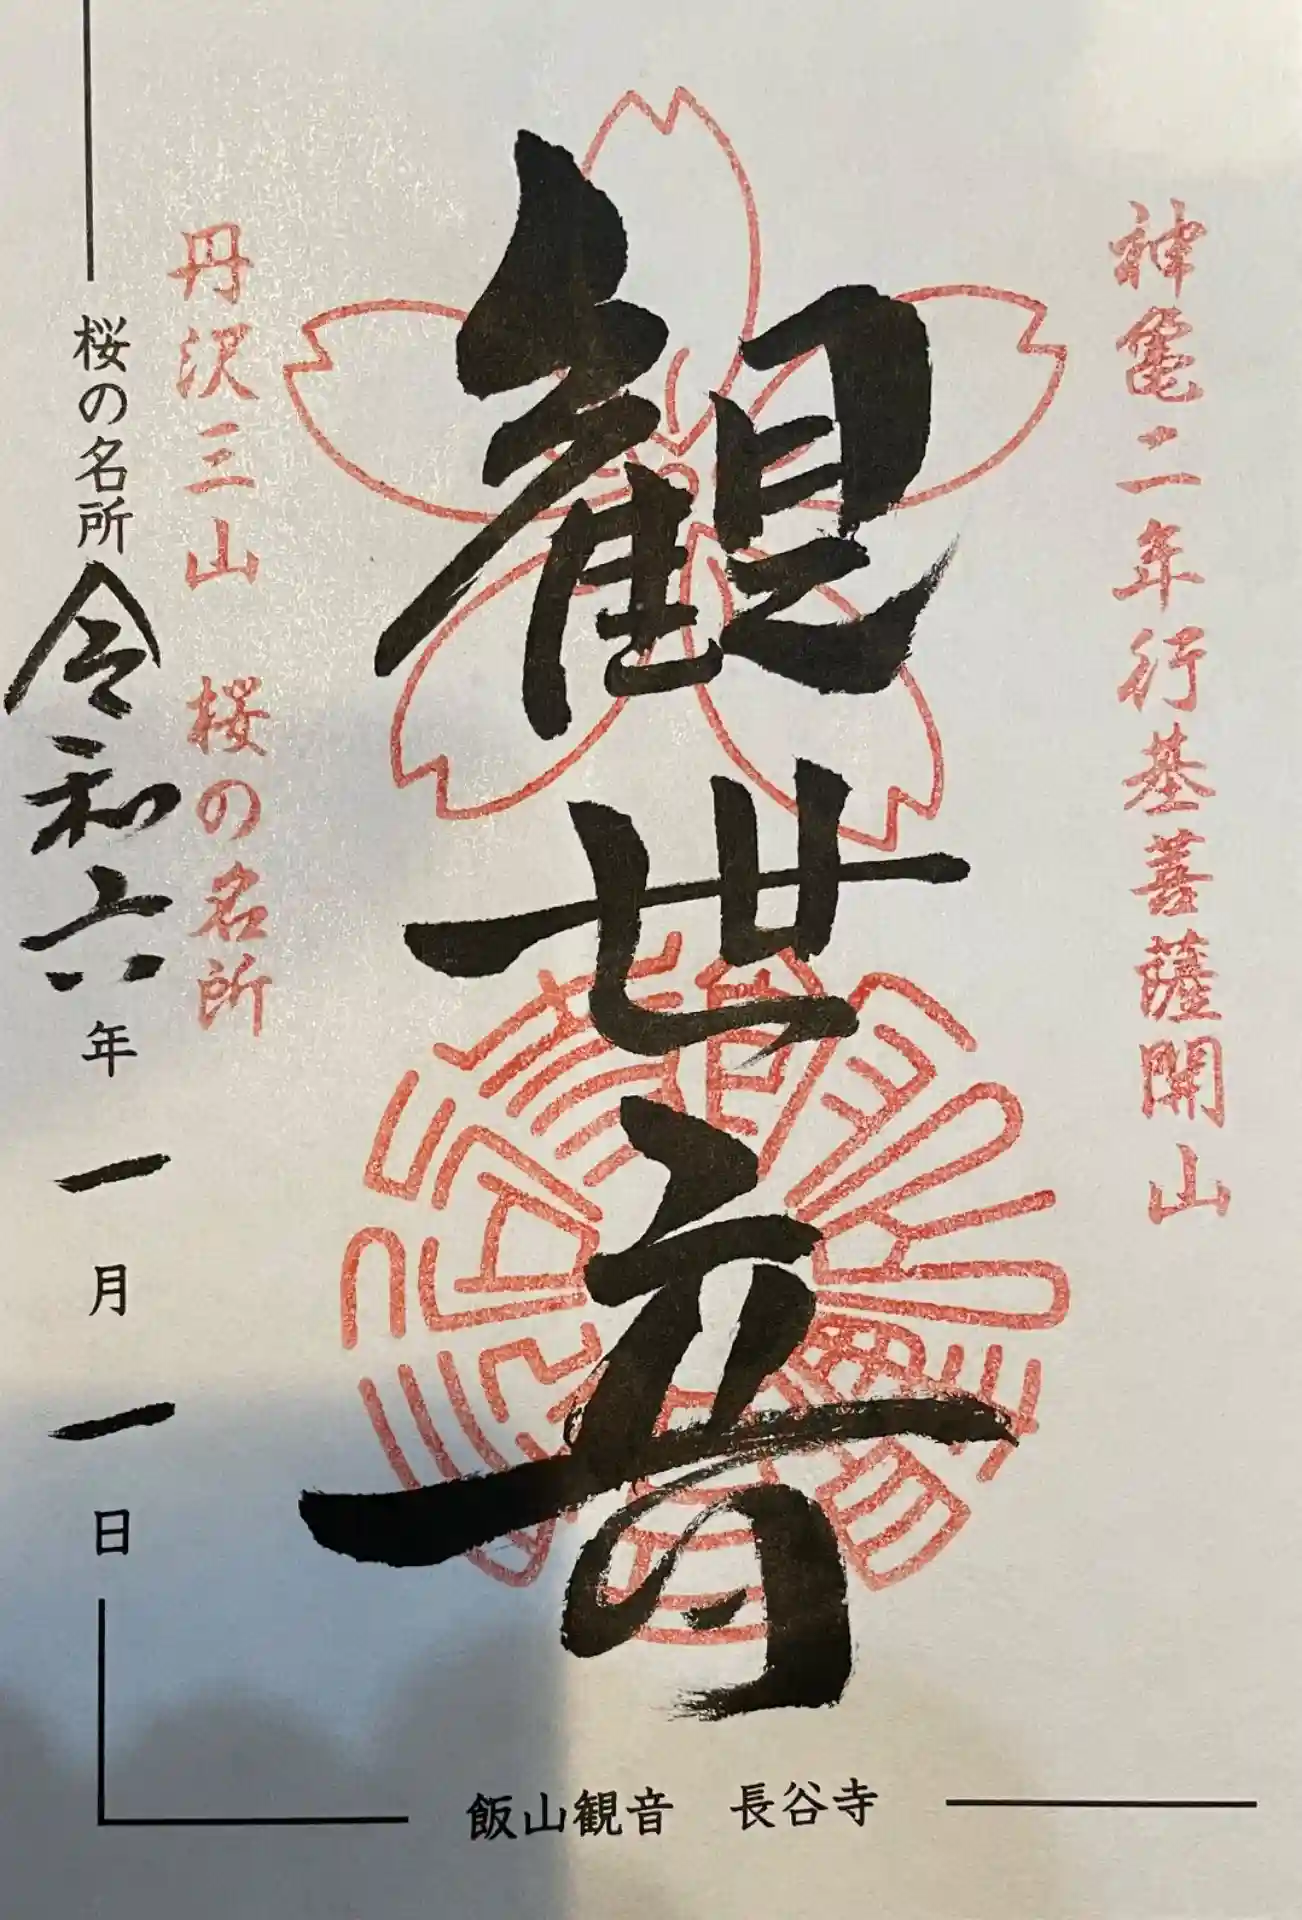 神亀二年行基菩薩開山
観世音
丹沢三山 桜の名所
桜の名所
令和六年一月一日
飯山観音 長谷寺